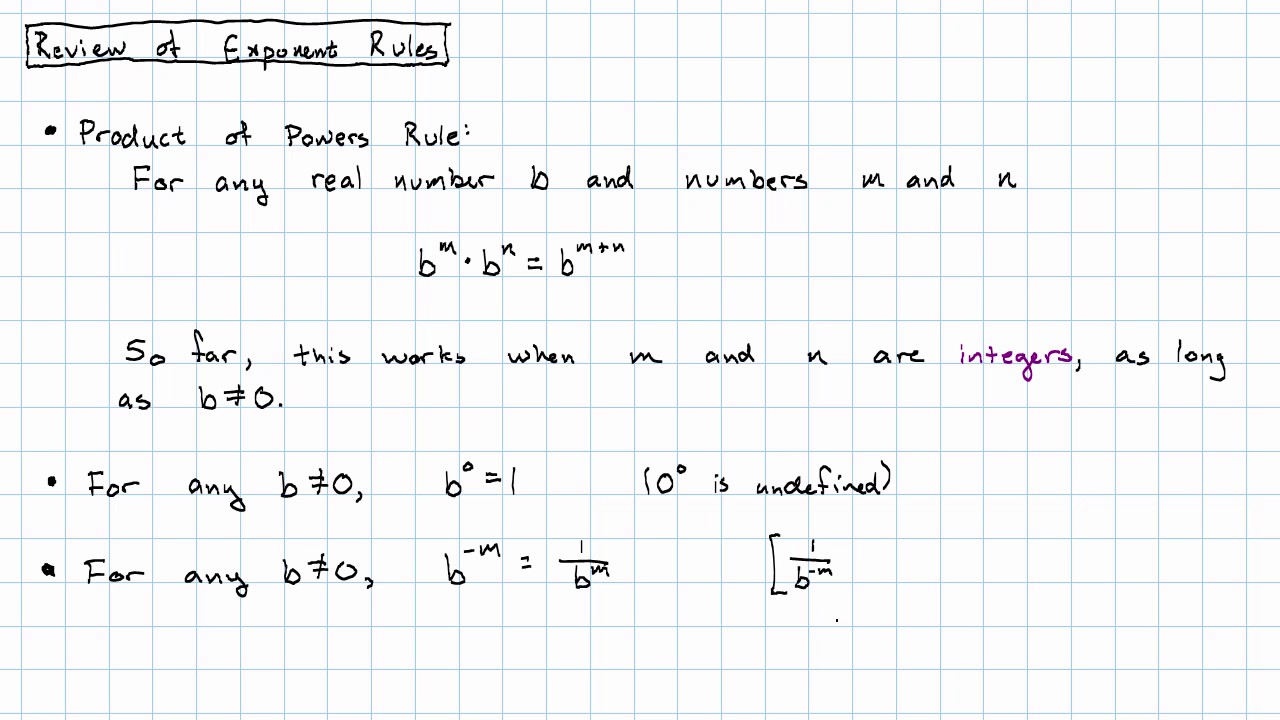 Review of Exponent Rules
• Product of Powers Rule:
For any real number b and numbers m and n
b^m · b^n = b^{m+n}
So far, this works when m and n are integers, as long
as b≠0.
• For any b≠0, b^0 = 1 (0^0 is undefined)
• For any b≠0, b^{-m} = 1/b^m [1/b^{-m}